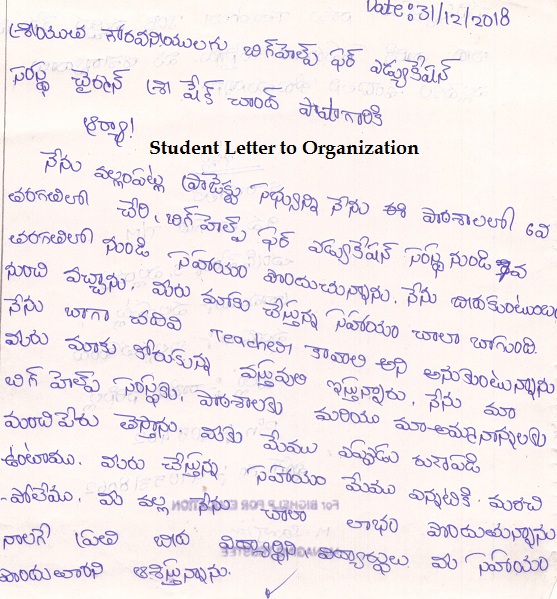 Date: 31/12/2018
శ్రీయుత గౌరవనీయులగు బిగ్‌హెల్ప్ ఫర్ ఎడ్యుకేషన్
సంస్థ చైర్మన్ శ్రీ షేక్ చాంద్ పాషాగారికి
ఆర్యా!
Student Letter to Organization
నేను వల్లంపట్ల ప్రాజెక్టు సభ్యున్ని నేను ఈ పాఠశాలలో 6వ
తరగతిలో చేరి, బిగ్‌హెల్ప్ ఫర్ ఎడ్యుకేషన్ సంస్థ నుండి 7వ
తరగతిలో నుండి సహాయం పొందుచున్నాను. నేను
నుంచి వచ్చాను. మీరు మాకు చేస్తున్న సహాయం చాలా బాగుంది.
నేను బాగా చదివి Teacher కావాలి అని అనుకుంటున్నాను
మీరు మాకు కోరుకున్న వస్తువులి ఇస్తున్నారు. నేను మా
బిగ్ హెల్ప్ సంస్థకు, పాఠశాలకు మరియు మా-అమ్మనాన్నలకు
మంచిపేరు తెస్తాను. మీకు మేము ఎప్పుడు రుణపడి
ఉంటాము. మీరు చేస్తున్న సహాయం మేము ఎన్నటికి మరచి
-పోలేము. మీ వల్ల నేను చాలా లాభం పొందుతున్నాను
నాలాగే ప్రతి బీద విద్యార్థిని విద్యార్థులు మీ సహాయం
పొందుతారని ఆశిస్తున్నాను.